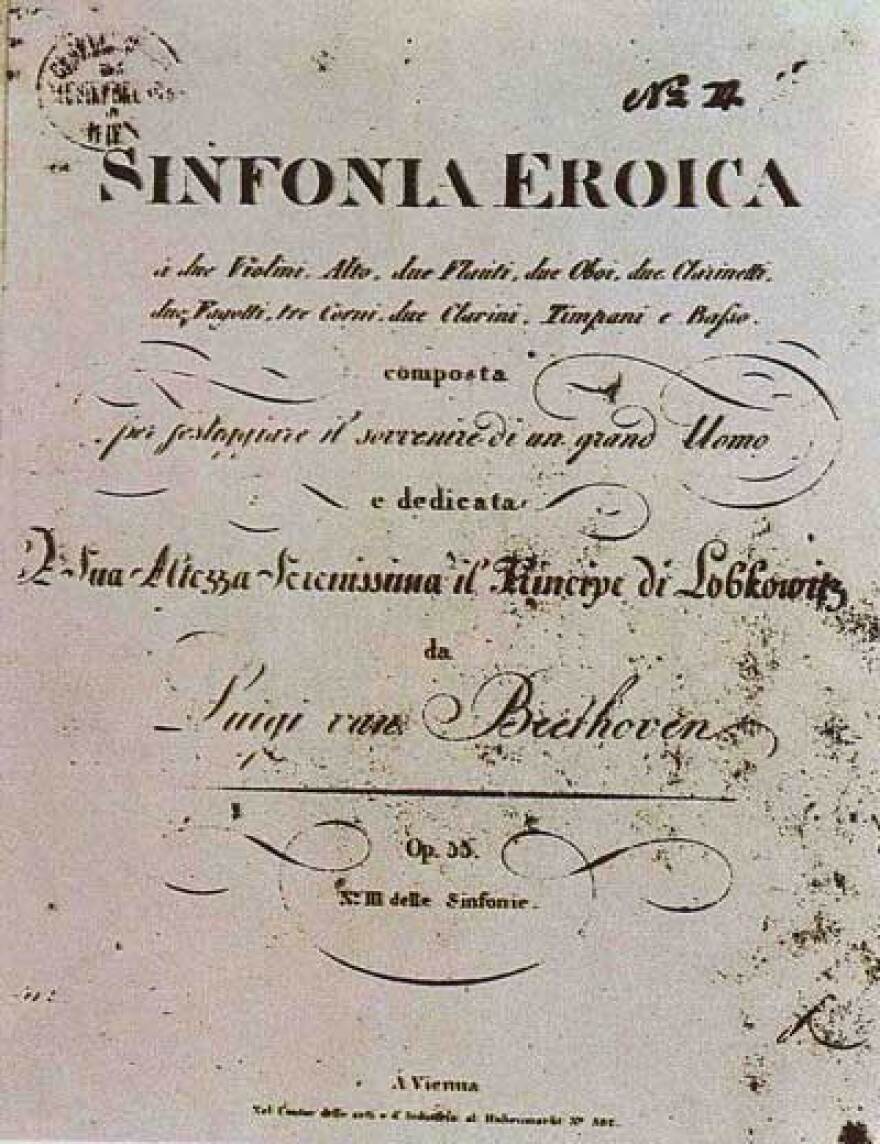 SINFONIA EROICA
à due Violini, Alto, due Flauti, due Oboi, due Clarinetti,
due Fagotti, tre Corni, due Clarini, Timpani e Basso.
composta
per festeggiare il sovvenire di un grand Uomo
e dedicata
A Sua Altezza Serenissima il Principe di Lobkowitz
da
Luigi van Beethoven
Op. 55.
No. III delle Sinfonie.
A Vienna
Nel Contor delle arti e d' Industria al Hohenmarkt No